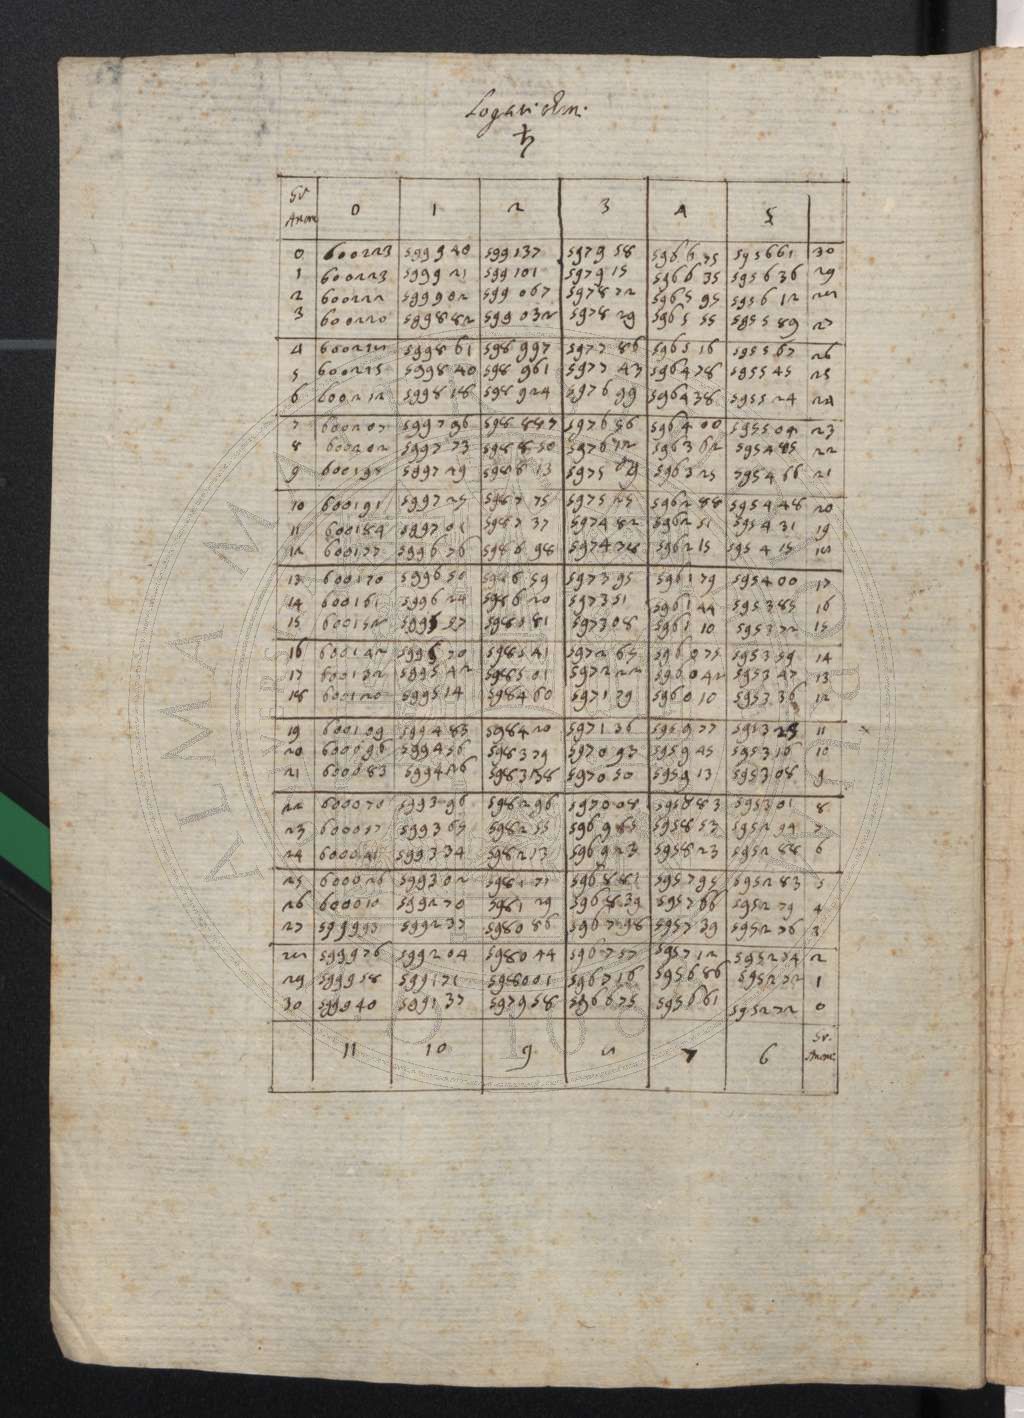 Logarithm.
♄
Gr Anom 0 1 2 3 4 5
0 600223 599940 599137 597958 596675 595661 30
1 600223 599921 599101 597915 596635 595636 29
2 600222 599902 599067 597872 596595 595612 28
3 600220 599882 599032 597829 596555 595589 27
4 599861 598997 597786 596516 595567 26
5 600215 599840 598961 597743 596478 595545 25
6 600212 599818 598924 597699 596438 595524 24
7 600207 599796 598887 597656 596400 595504 23
8 600202 599773 598850 597612 596362 595485 22
9 600197 599749 598813 596325 595466 21
10 600191 599725 598775 597525 596288 595448 20
11 600184 599701 598737 597482 596251 595431 19
12 600177 599676 598698 596215 595415 18
13 600170 599650 598659 597395 596179 595400 17
14 600161 599624 598620 597351 596144 595385 16
15 600152 598581 597308 596110 595372 15
16 600142 599570 598541 597265 596075 595359 14
17 600132 599542 598501 597222 596042 595347 13
18 600120 599514 598460 597179 596010 595336 12
19 600109 599485 598420 597136 595977 595325 11
20 600096 599456 598379 597093 595945 595316 10
21 600083 599426 598338 597050 595913 595308 9
22 600070 599396 598296 597008 595883 595301 8
23 600057 599365 598255 596965 595853 595294 7
24 600041 599334 598213 596923 595823 595288 6
25 600026 599302 598171 596881 595795 595283 5
26 600010 599270 598129 596839 595766 595279 4
27 599993 599237 598086 596798 595739 595276 3
28 599976 599204 598044 596757 595712 595274 2
29 599958 599171 598001 596716 595686 595272 1
30 599940 599137 597958 596675 595661 595272 0
11 10 9 8 7 6 Gr. Anom.